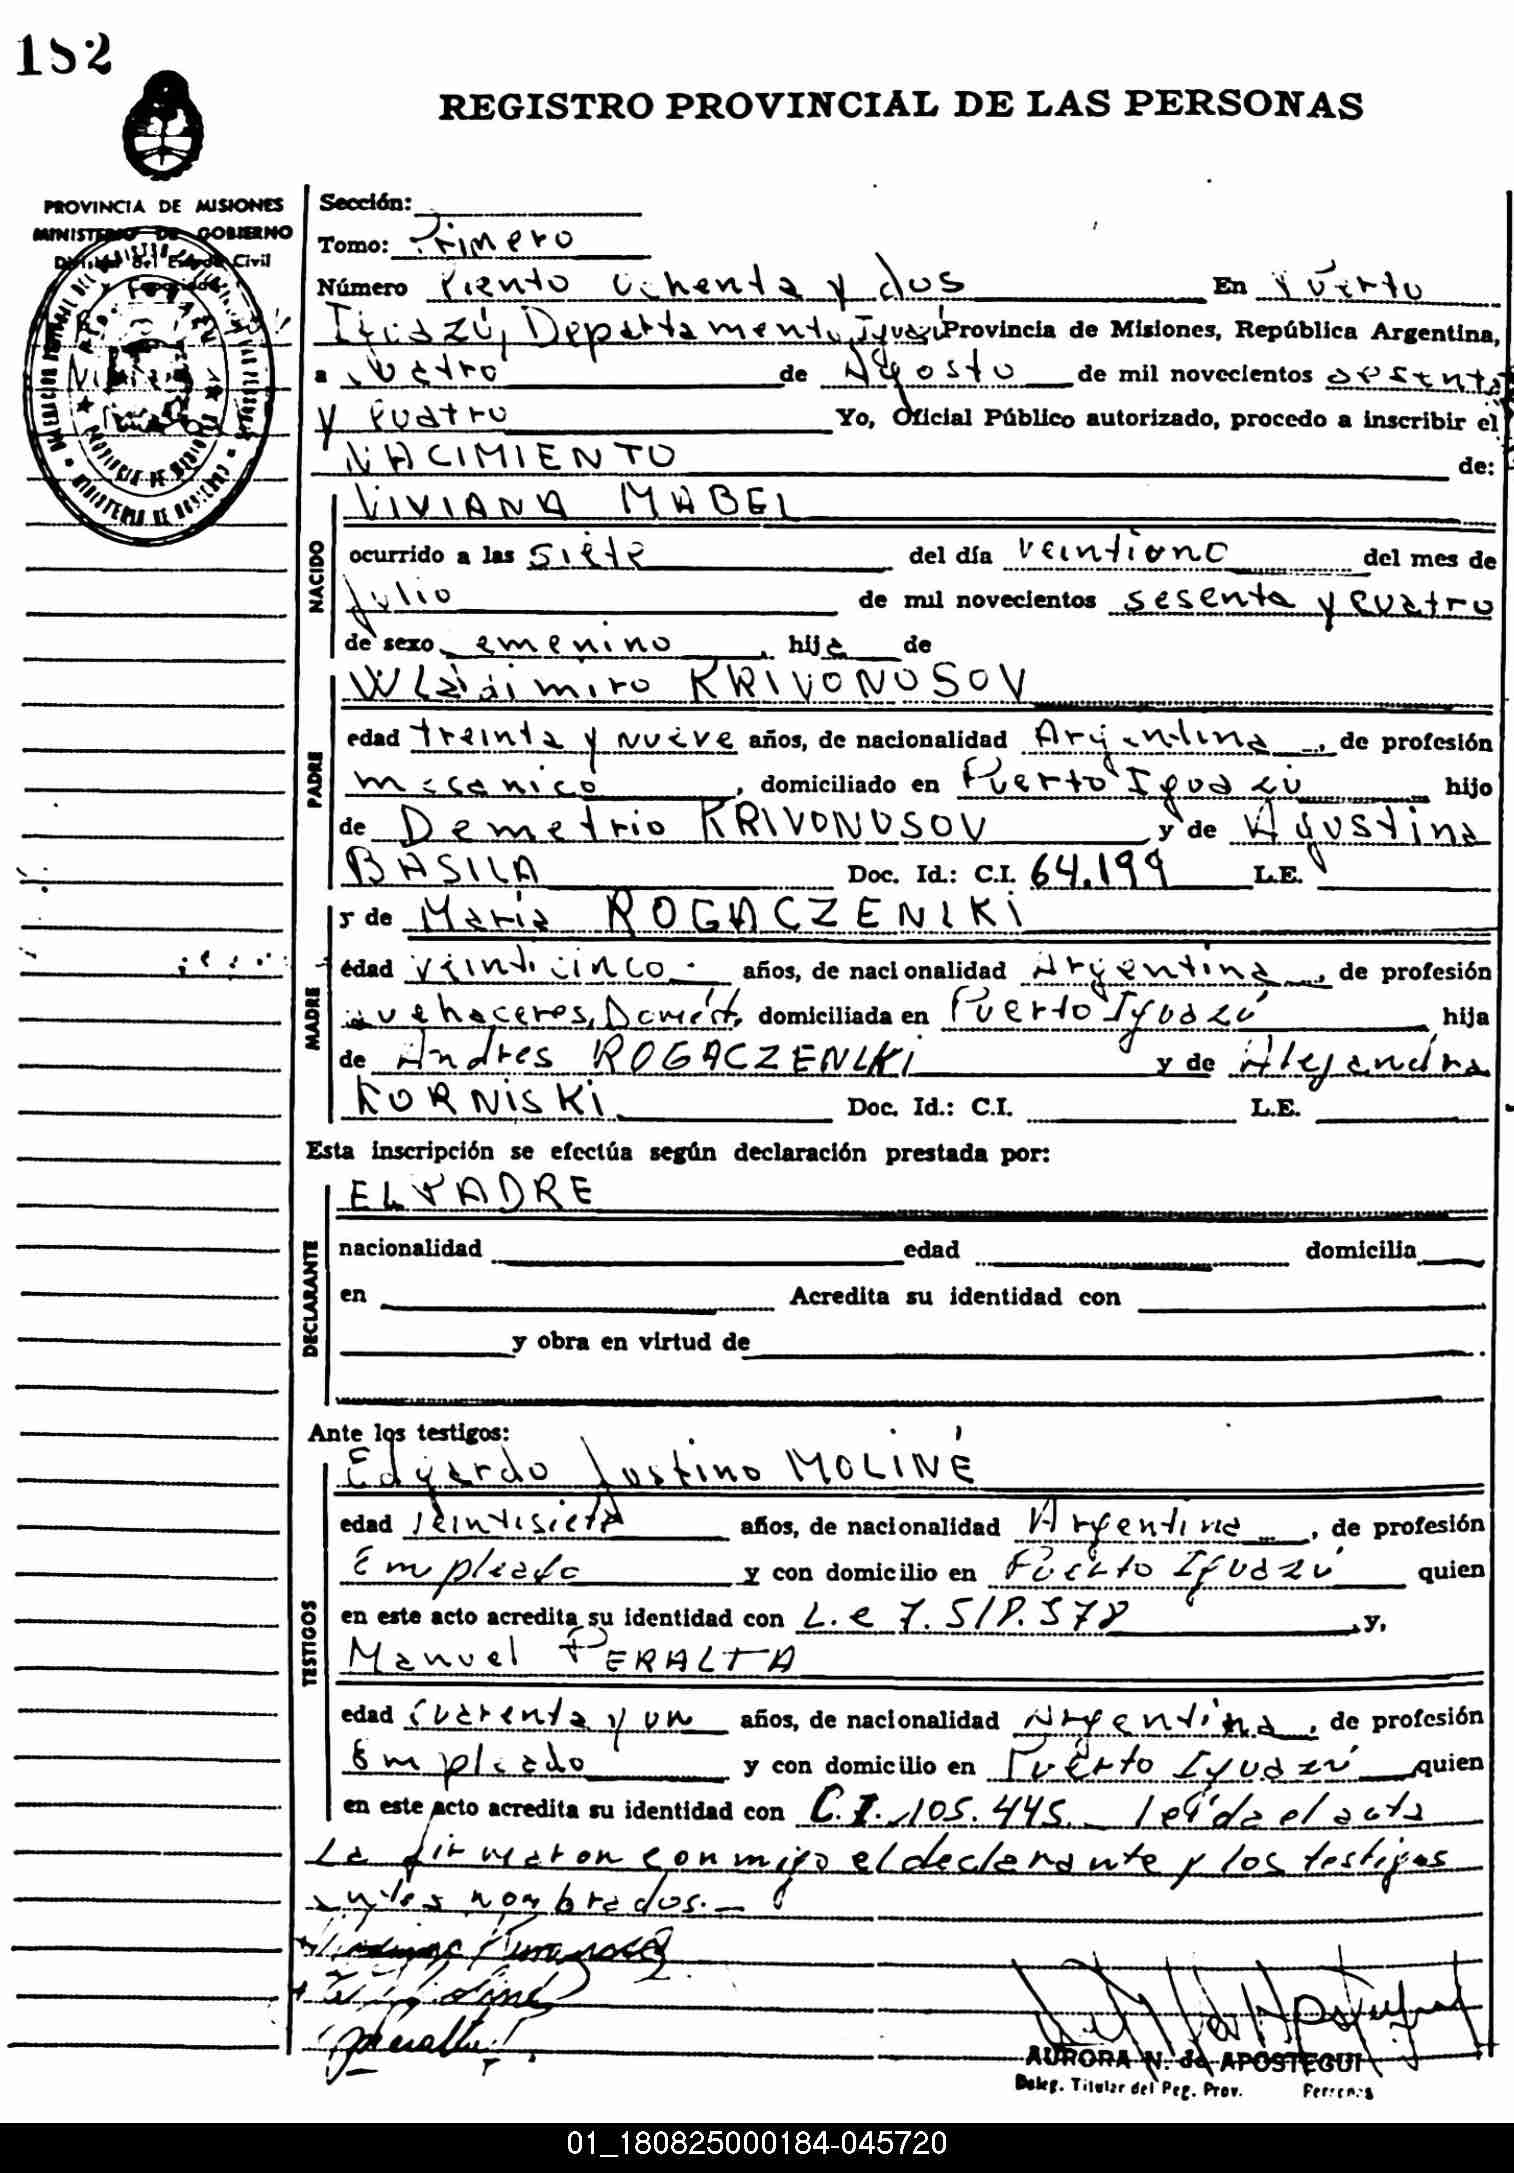 182
REGISTRO PROVINCIAL DE LAS PERSONAS
PROVINCIA DE MISIONES
MINISTERIO DE GOBIERNO
División del Estado Civil
y Capacidad
Sección:
Tomo: Primero
Número Ciento ochenta y dos En Puerto
Iguazú, Departamento Iguazú Provincia de Misiones, República Argentina,
a cuatro de Agosto de mil novecientos sesenta
y cuatro Yo, Oficial Público autorizado, procedo a inscribir el
NACIMIENTO de:
NACIDO
VIVIANA MABEL
ocurrido a las siete del día veintiuno del mes de
julio de mil novecientos sesenta y cuatro
de sexo femenino, hija de
PADRE
Wladimiro KRIVONOSOV
edad treinta y nueve años, de nacionalidad Argentina, de profesión
mecanico, domiciliado en Puerto Iguazú hijo
de Demetrio KRIVONOSOV y de Agustina
BASILA Doc. Id.: C.I. 64.199 L.E.
MADRE
y de María ROGACZENLKI
edad veinticinco años, de nacionalidad Argentina, de profesión
quehaceres, Domést, domiciliada en Puerto Iguazú hija
de Andres ROGACZENLKI y de Alejandra
KORNISKI Doc. Id.: C.I. L.E.
Esta inscripción se efectúa según declaración prestada por:
DECLARANTE
EL PADRE
nacionalidad edad domicilia
en Acredita su identidad con
y obra en virtud de
Ante los testigos:
TESTIGOS
Edgardo Justino MOLINÉ
edad veintisiete años, de nacionalidad Argentina, de profesión
Empleado y con domicilio en Puerto Iguazú quien
en este acto acredita su identidad con L.e 7.518.578 y,
Manuel PERALTA
edad cuarenta y un años, de nacionalidad Argentina, de profesión
Empleado y con domicilio en Puerto Iguazú quien
en este acto acredita su identidad con C.I. 105.445. leída el acta
La firmaron conmigo el declarante y los testigos
antes nombrados.-
AURORA N. de APOSTEGUI
Deleg. Titular del Reg. Prov. Personas
01_180825000184-045720